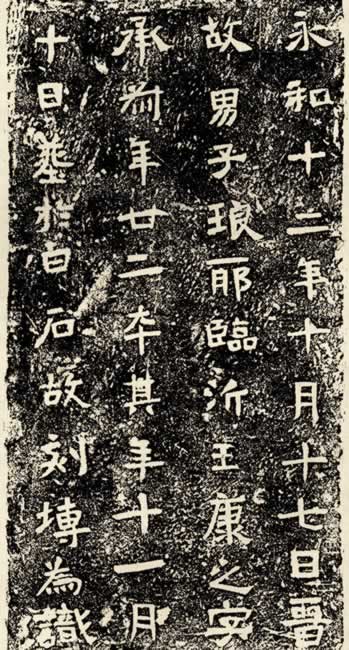 永和十二年十月十七日晉
故男子琅耶臨沂王康之字
承叔年廿二卒其年十一月
十日葬於白石故刻塼為識